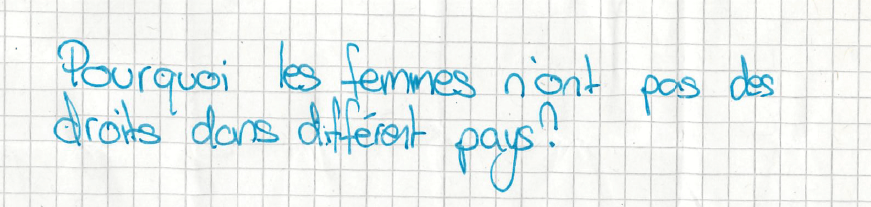 Pourquoi les femmes n'ont pas des
droits dans différent pays?